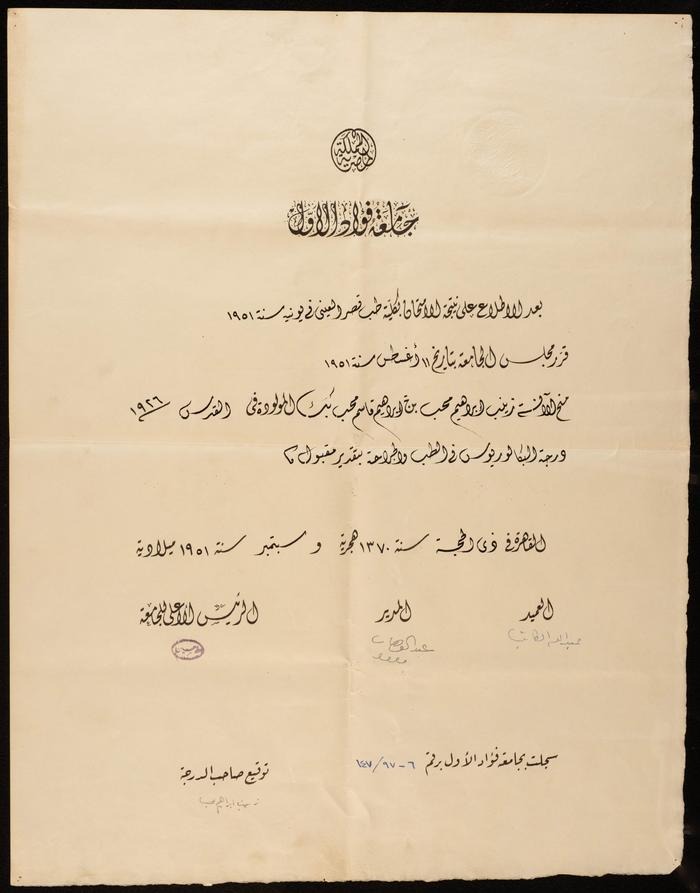 المملكة المصرية
جامعة فؤاد الأول
بعد الاطلاع على نتيجة الامتحان بكلية طب قصر العينى فى يونيه سنة ١٩٥١
قرر مجلس الجامعة بتاريخ ١١ أغسطس سنة ١٩٥١
منح الآنسة زينب ابراهيم محب ابراهيم قاسم محب المولودة فى القدس ١٩٢٦
درجة البكالوريوس فى الطب والجراحة بتقدير مقبول
القاهرة فى ذى الحجة سنة ١٣٧٠ هجرية و سبتمبر سنة ١٩٥١ ميلادية
العميد المدير الرئيس الأعلى للجامعة
سجلت بجامعة فؤاد الأول برقم
توقيع صاحب الدرجة
زينب ابراهيم محب